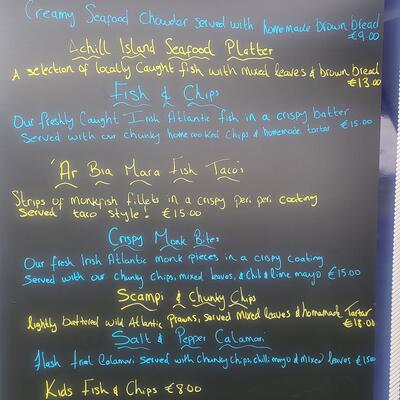 Creamy Seafood Chowder served with homemade brown bread
€9.00
Achill Island Seafood Platter
A selection of locally Caught fish with mixed leaves & brown bread
€13.00
Fish & Chips
Our freshly Caught Irish Atlantic fish in a crispy batter
Served with our chunky home cooked Chips & homemade tartar €15.00
'Ar Bia Mara Fish Taco's
Strips of monkfish fillets in a crispy peri peri coating
Served taco style! €15.00
Crispy Monk Bites
Our fresh Irish Atlantic monk pieces in a crispy coating
Served with our chunky Chips, mixed leaves, & chili & lime mayo €15.00
Scampi & Chunky Chips
lightly battered wild Atlantic Prawns, served Mixed leaves & homemade Tartar
€18.00
Salt & Pepper Calamari
Flash fried Calamari served with chunky chips, chilli mayo & Mixed leaves
Kids Fish & Chips €8.00